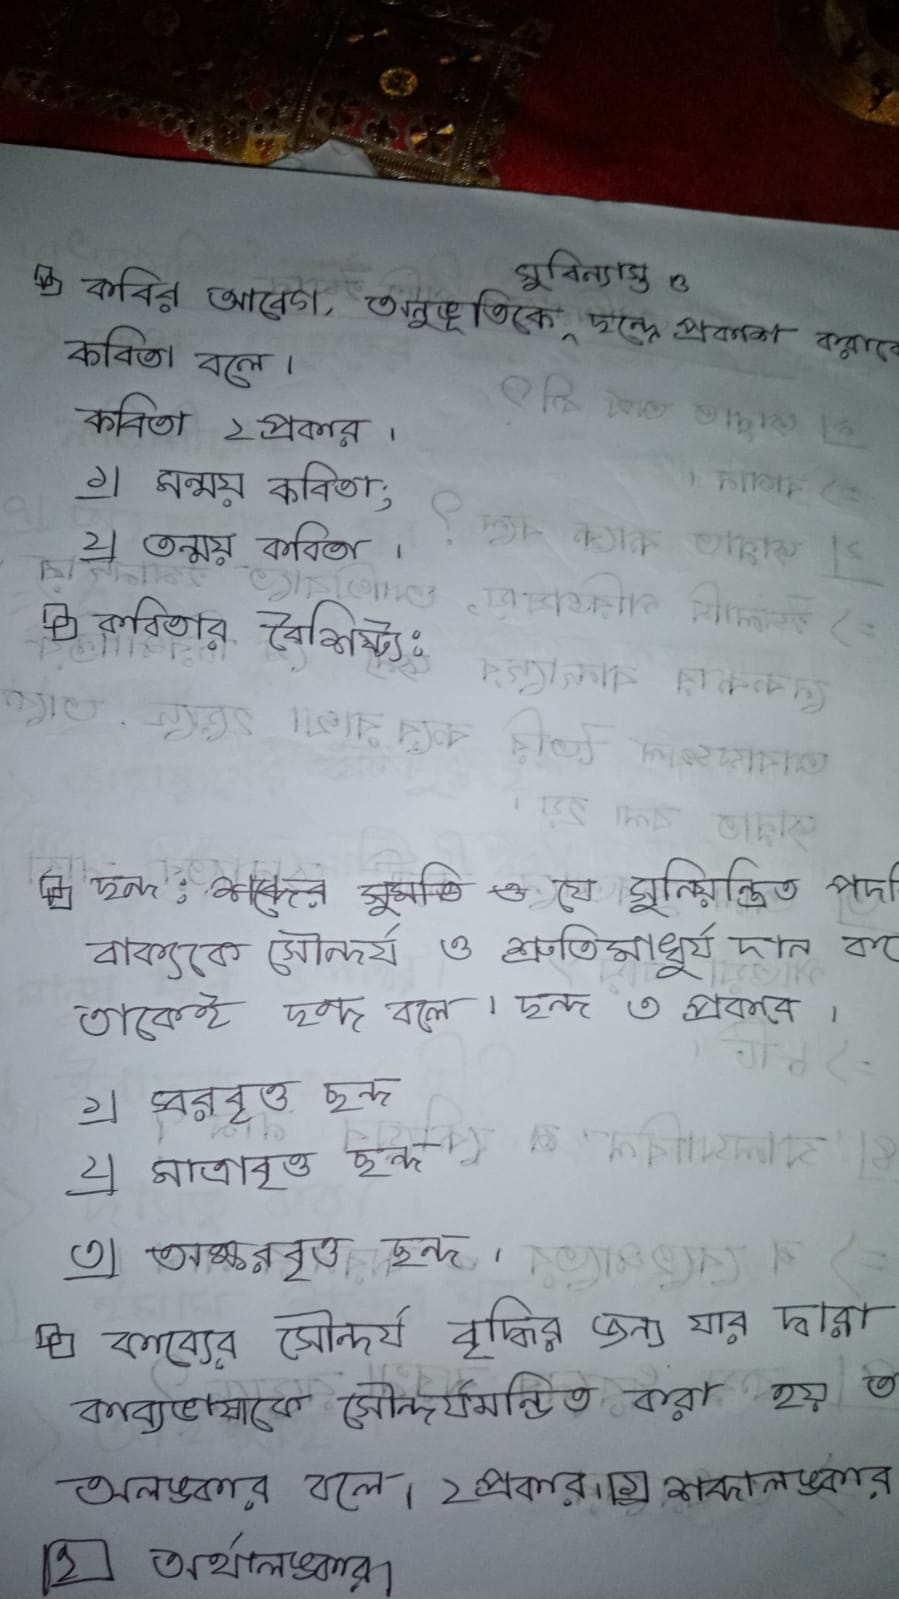 সুবিন্যাস্ত ও
কবির আবেগ, অনুভূতিকে ছন্দে প্রকাশ করাকে
কবিতা বলে।
কবিতা ২ প্রকার।
১) মন্ময় কবিতা;
২) তন্ময় কবিতা।
কবিতার বৈশিষ্ট্য:
ছন্দ: শব্দের সুমতি ও যে সুনিয়ন্ত্রিত
বাক্যকে সৌন্দর্য ও শ্রুতিমাধুর্য দান করে
তাকেই ছন্দ বলে। ছন্দ ৩ প্রকার।
১) স্বরবৃত্ত ছন্দ
২) মাত্রাবৃত্ত ছন্দ
৩) অক্ষরবৃত্ত ছন্দ।
কাব্যের সৌন্দর্য বৃদ্ধির জন্য যার দ্বারা
কাব্যভাষাকে সৌন্দর্যমন্ডিত করা হয়
অলঙ্কার বলে। ২ প্রকার। ১ শব্দালঙ্কার
২ অর্থালঙ্কার।